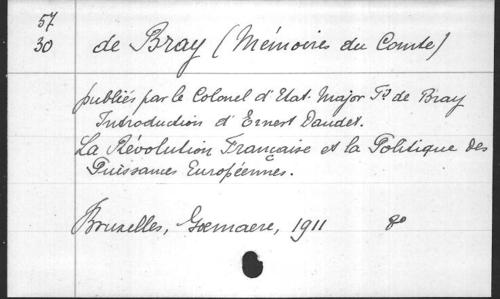 57
30
de Bray (Mémoires du Comte)
publiés par le Colonel d'Etat-Major F. de Bray
Introduction d'Ernest Daudet.
La Révolution Française et la Politique des
Puissances Européennes.
Bruxelles, Goemaere, 1911 8°